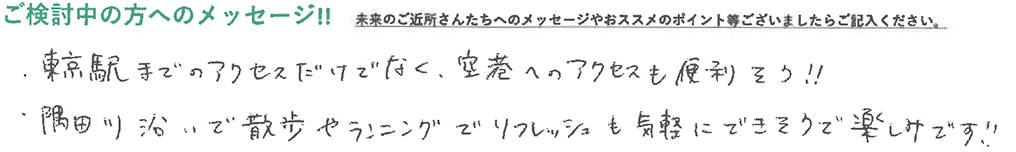 ご検討中の方へのメッセージ!! 未来のご近所さんたちへのメッセージやおススメのポイント等ございましたらご記入ください。
・東京駅までのアクセスだけでなく、空港へのアクセスも便利そう!!
・隅田川沿いで散歩やランニングでリフレッシュも気軽にできそうで楽しみです!!